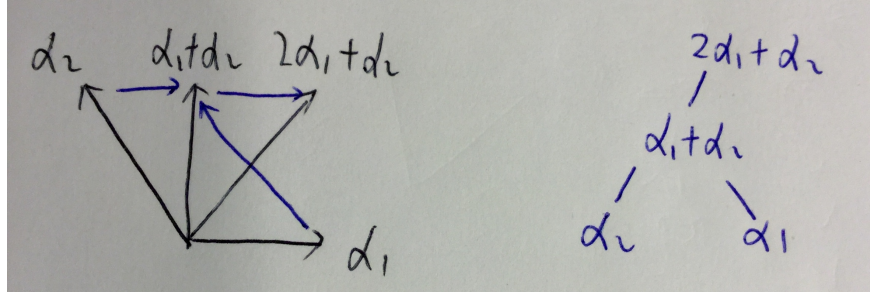 α₂ α₁+α₂ 2α₁+α₂
α₁
2α₁+α₂
α₁+α₂
α₂ α₁